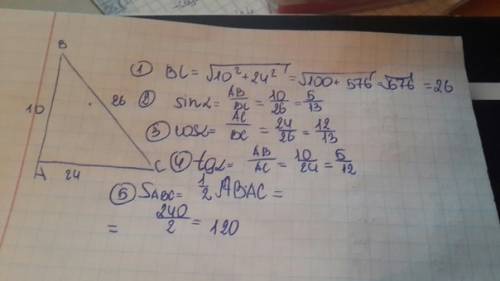 B
10
26
A
24
C
① BC = √10² + 24² = √100 + 576 = √676 = 26
② sinα = AB/BC = 10/26 = 5/13
③ cosα = AC/BC = 24/26 = 12/13
④ tgα = AB/AC = 10/24 = 5/12
⑤ SABC = 1/2 AB·AC =
= 240/2 = 120